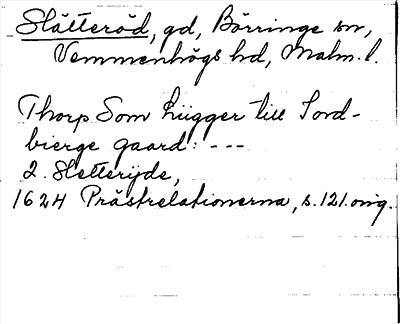 Slätteröd, gd, Börringe sn,
Vemmenhögs hd, Malm. l.
Thorp Som liigger till Jord-
bierge gaard: ---
2. Sletterijde,
1624 Prästrelationerna, s. 121. orig.